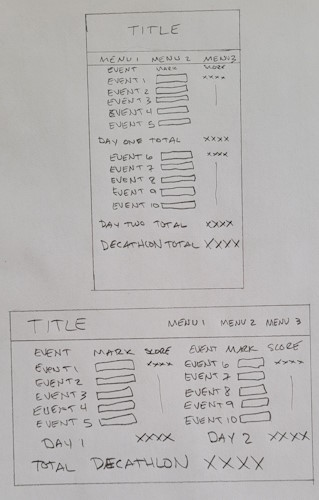 TITLE
MENU 1 MENU 2 MENU 3
EVENT MARK SCORE
EVENT 1 XXXX
EVENT 2
EVENT 3
EVENT 4
EVENT 5
DAY ONE TOTAL XXXX
EVENT 6 XXXX
EVENT 7
EVENT 8
EVENT 9
EVENT 10
DAY TWO TOTAL XXXX
DECATHLON TOTAL XXXX
TITLE MENU 1 MENU 2 MENU 3
EVENT MARK SCORE EVENT MARK SCORE
EVENT 1 XXXX EVENT 6 XXXX
EVENT 2 EVENT 7
EVENT 3 EVENT 8
EVENT 4 EVENT 9
EVENT 5 EVENT 10
DAY 1 XXXX DAY 2 XXXX
TOTAL DECATHLON XXXX